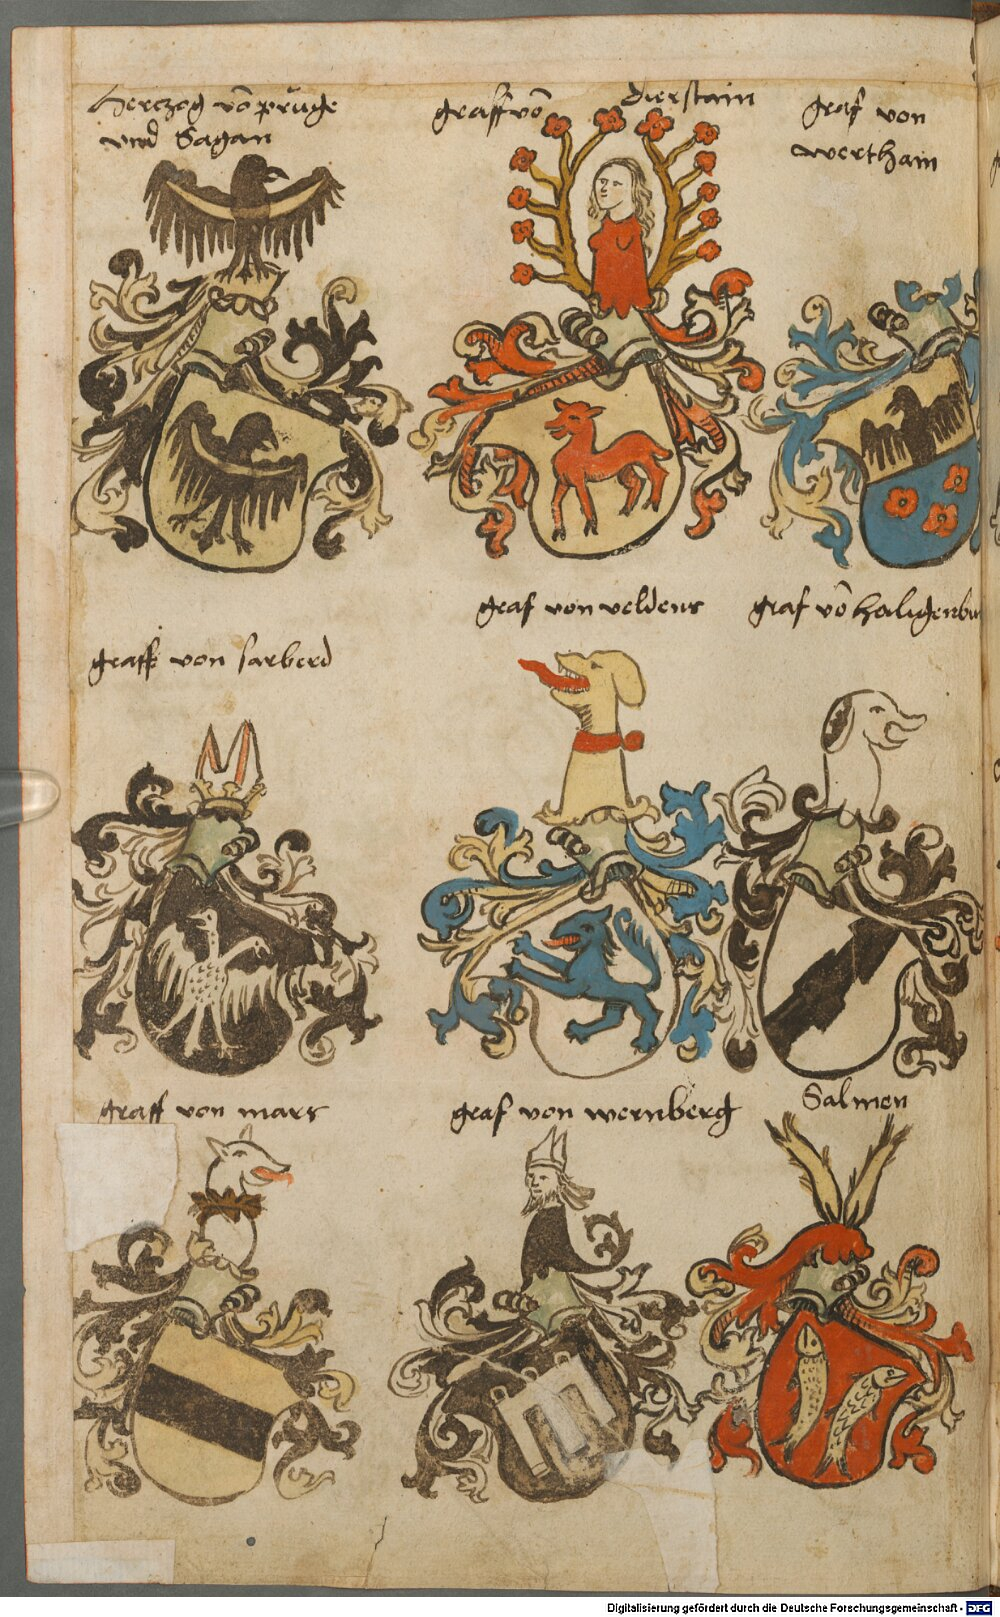 Herczog võ pruge
vnd Sagan
graff võ dierstain
graf von
werthain
graff von sarberd
graf von veldens
graf võ heiligenbu
graff von mars
graf von wernberg
Salmen
Digitalisierung gefördert durch die Deutsche Forschungsgemeinschaft - DFG